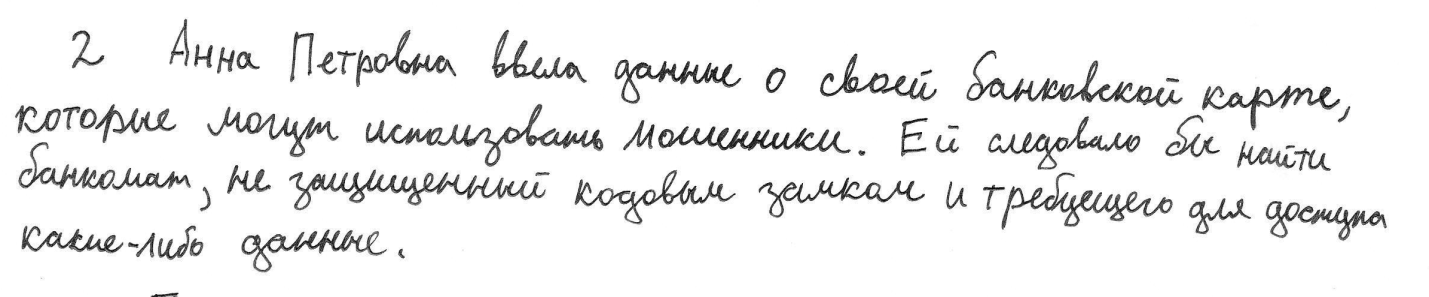 2 Анна Петровна ввела данные о своей банковской карте,
которые могут использовать мошенники. Ей следовало бы найти
банкомат, не защищенный кодовым замком и требуещего для доступа
какие-либо данные.